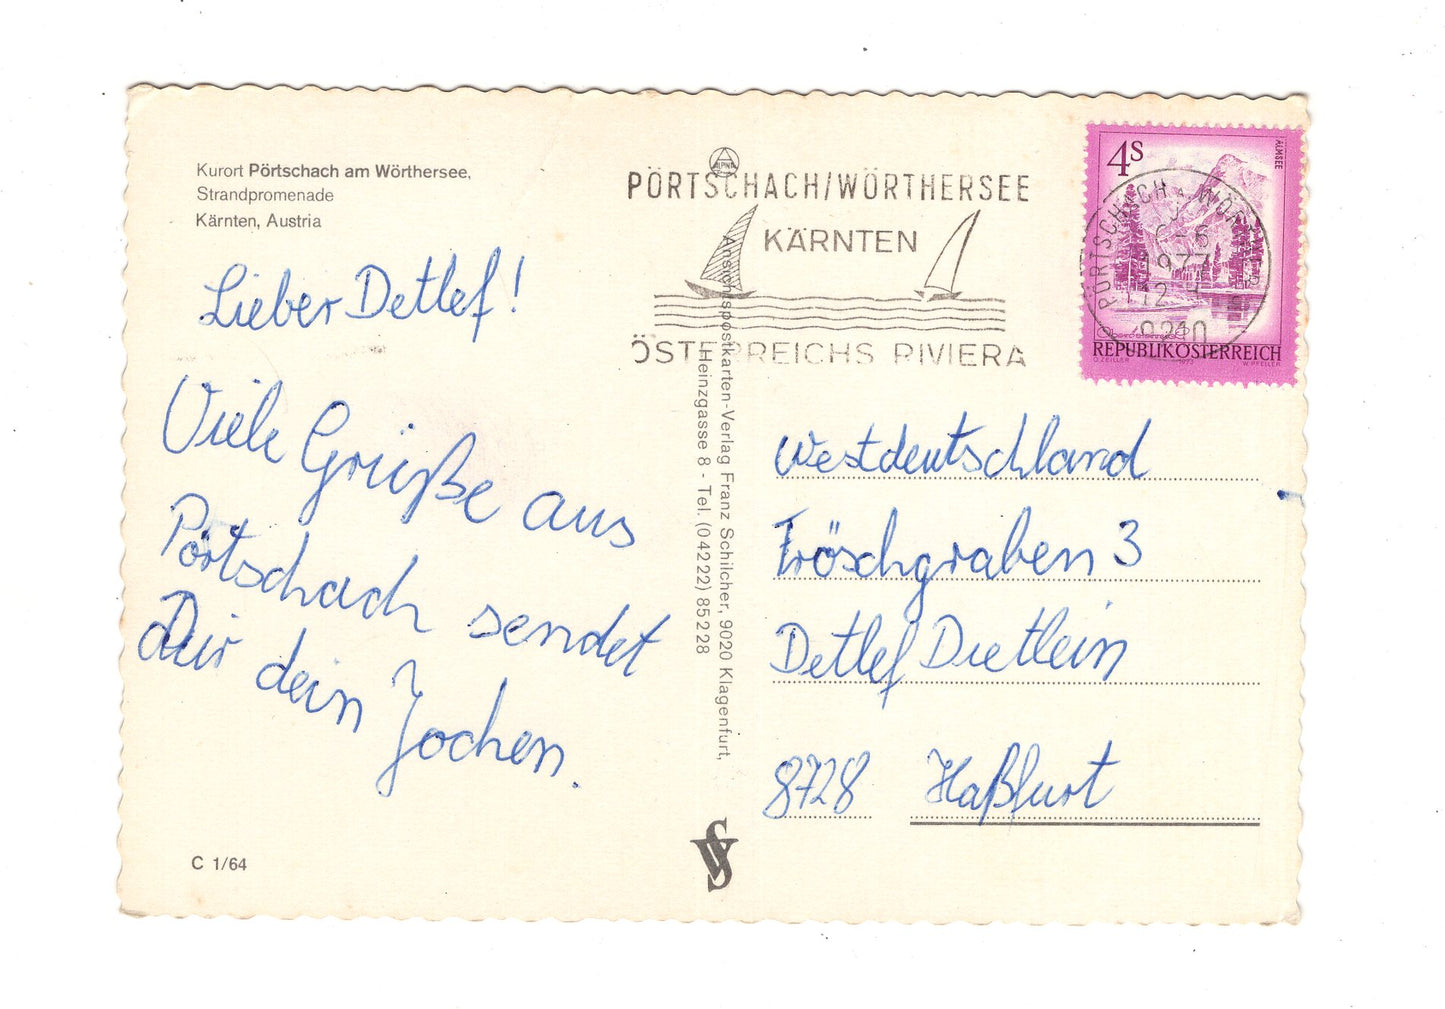 Kurort Pörtschach am Wörthersee,
Strandpromenade
Kärnten, Austria
Lieber Detlef!
Viele Grüße aus
Pörtschach sendet
Dir dein Jochen.
C 1/64
ALPINA
PÖRTSCHACH/WÖRTHERSEE
KÄRNTEN
ÖSTERREICHS RIVIERA
Ansichtspostkarten-Verlag Franz Schilcher, 9020 Klagenfurt,
Heinzgasse 8 - Tel. (04222) 85228
4S
ALMSEE
PÖRTSCHACH a. WÖRTHER S
1977
9210
REPUBLIK ÖSTERREICH
O. ZEILLER 1973 W. PFEILER
Westdeutschland
Fröschgraben 3
Detlef Dietlein
8728 Haßfurt